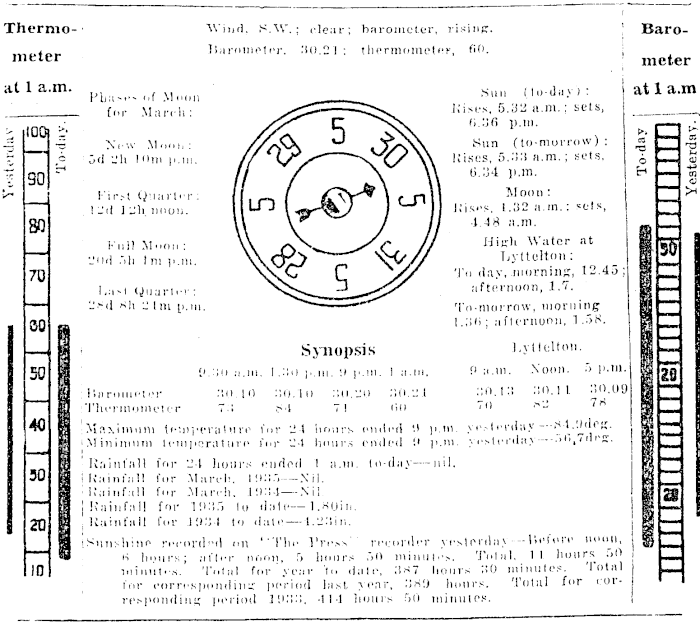 Thermo-
meter
at 1 a.m.
Yesterday
To-day.
100
90
80
70
60
50
40
30
20
10
Wind, S.W.; clear; barometer, rising.
Barometer, 30.21; thermometer, 60.
Phases of Moon
for March:
New Moon:
5d 2h 10m p.m.
First Quarter:
12d 12h noon.
Full Moon:
20d 5h 1m p.m.
Last Quarter:
28d 8h 21m p.m.
29
5
30
5
31
5
28
5
Sun (to-day):
Rises, 5.32 a.m.; sets,
6.36 p.m.
Sun (to-morrow):
Rises, 5.33 a.m.; sets,
6.34 p.m.
Moon:
Rises, 4.32 a.m.; sets,
4.48 a.m.
High Water at
Lyttelton:
To day, morning, 12.45;
afternoon, 1.7.
To-morrow, morning
1.36; afternoon, 1.58.
Synopsis
Lyttelton.
9.30 a.m. 1.30 p.m. 9 p.m. 1 a.m. 9 a.m. Noon. 5 p.m.
Barometer 30.10 30.10 30.20 30.21 30.13 30.11 30.09
Thermometer 73 84 71 60 70 82 78
Maximum temperature for 24 hours ended 9 p.m. yesterday—84.9deg.
Minimum temperature for 24 hours ended 9 p.m. yesterday—56.7deg.
Rainfall for 24 hours ended 1 a.m. to-day—nil.
Rainfall for March, 1935—Nil.
Rainfall for March, 1934—Nil
Rainfall for 1935 to date—1.80in.
Rainfall for 1934 to date—4.23in.
Sunshine recorded on "The Press" recorder yesterday—Before noon,
6 hours; after noon, 5 hours 50 minutes. Total, 11 hours 50
minutes. Total for year to date, 387 hours 30 minutes. Total
for corresponding period last year, 389 hours. Total for cor-
responding period 1933, 414 hours 50 minutes.
Baro-
meter
at 1 a.m
To-day
Yesterday.